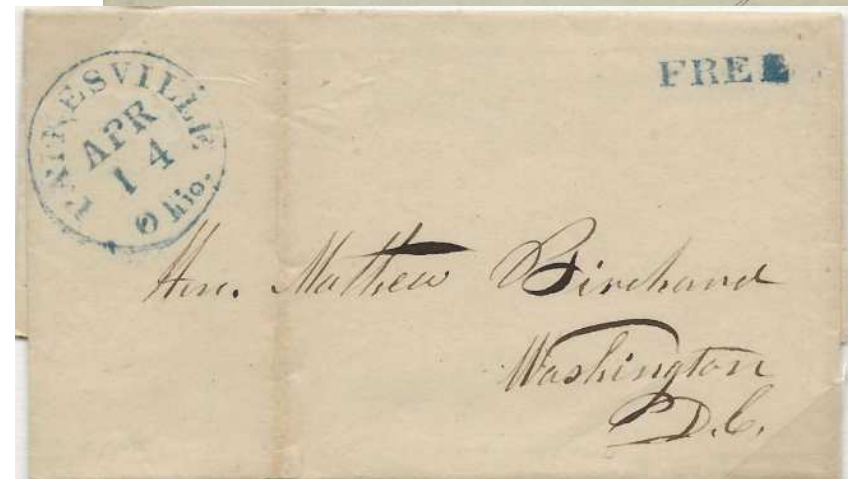 PAINESVILLE
APR
14
Ohio.
FREE
Hon. Mathew Birchard
Washington
D.C.